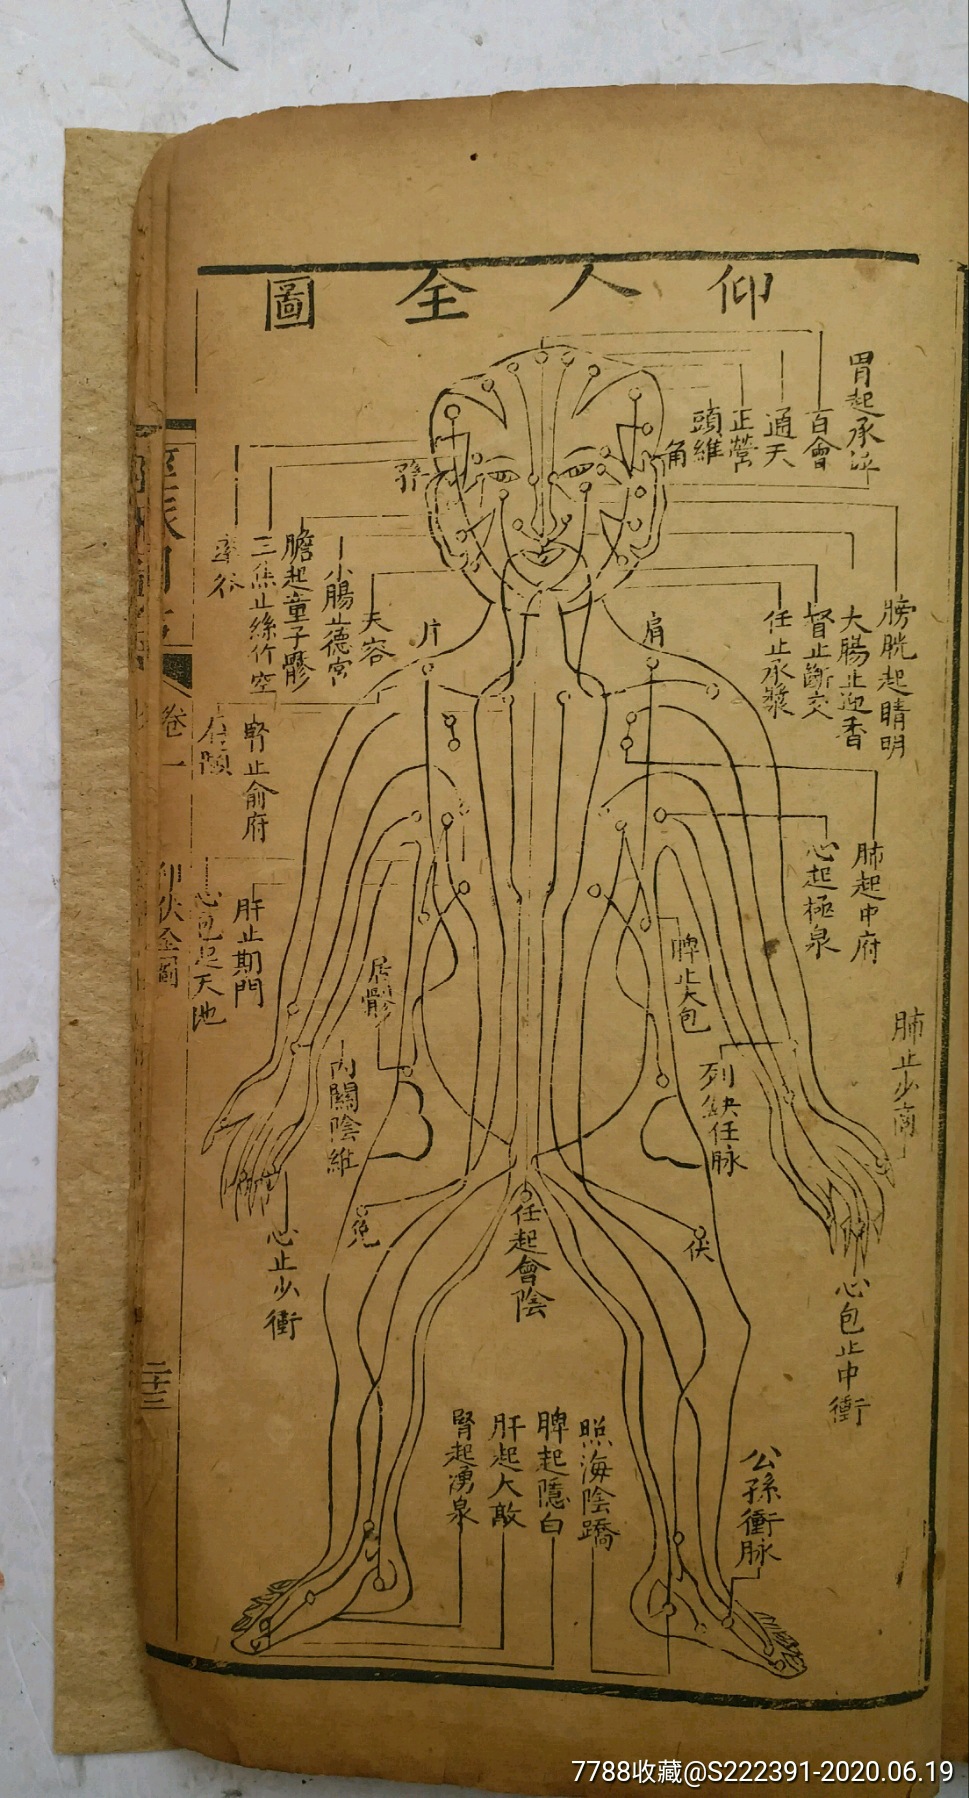 仰人全圖
胃起承泣
百會
通天
正營
頭維
角
孫
率谷
三焦止絲竹空
膽起童子髎
小腸止德宮
天容
片
肩
任止承漿
督止斷交
大腸止迎香
膀胱起睛明
腎止俞府
卷一
仰伏全圖
二十三
肝止期門
心包起天池
居髎
脾止大包
心起極泉
肺起中府
肺止少商
列缺任脉
內關陰維
心止少衝
兔
任起會陰
伏
心包止中衝
公孫衝脉
照海陰蹻
脾起隱白
肝起大敦
腎起湧泉
7788收藏@S222391-2020.06.19